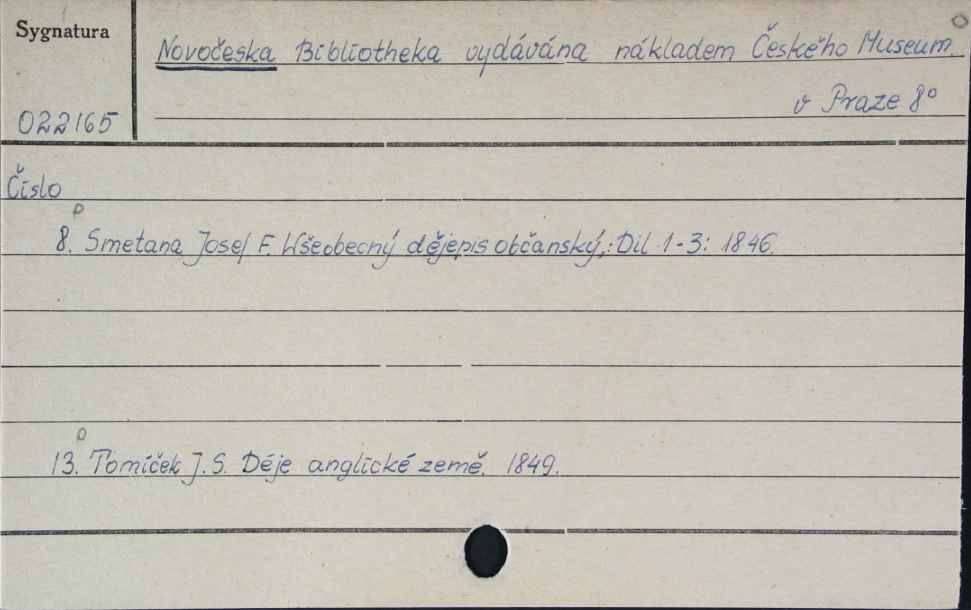 Sygnatura
Novočeska Bibliotheka vydávána nákladem Českého Museum.
v Praze 8°
022165
Číslo
8. Smetana Josef F. Wšeobecný dějepis občanský,: Dil 1-3: 1846.
13. Tomíček J. S. Děje anglické země. 1849.